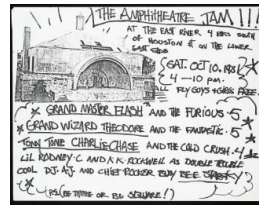 THE AMPHITHEATRE JAM !!!
AT THE EAST RIVER 4 BLKS SOUTH
OF HOUSTON ST ON THE LOWER
EAST SIDE
SAT. OCT 10. 1981
4 — 10 PM.
ALL FLY GUYS + GIRLS FREE.
GRAND MASTER FLASH AND THE FURIOUS · 5
GRAND WIZARD THEODORE AND THE FANTASTIC · 5
TONY TONE CHARLIE CHASE AND THE COLD CRUSH · 4
LIL RODNEY · C AND K.K. ROCKWELL AS DOUBLE TROUBLE
COOL DJ. AJ AND CHIEF ROCKER BUSY BEE
(PS. BE THERE OR BE SQUARE!)